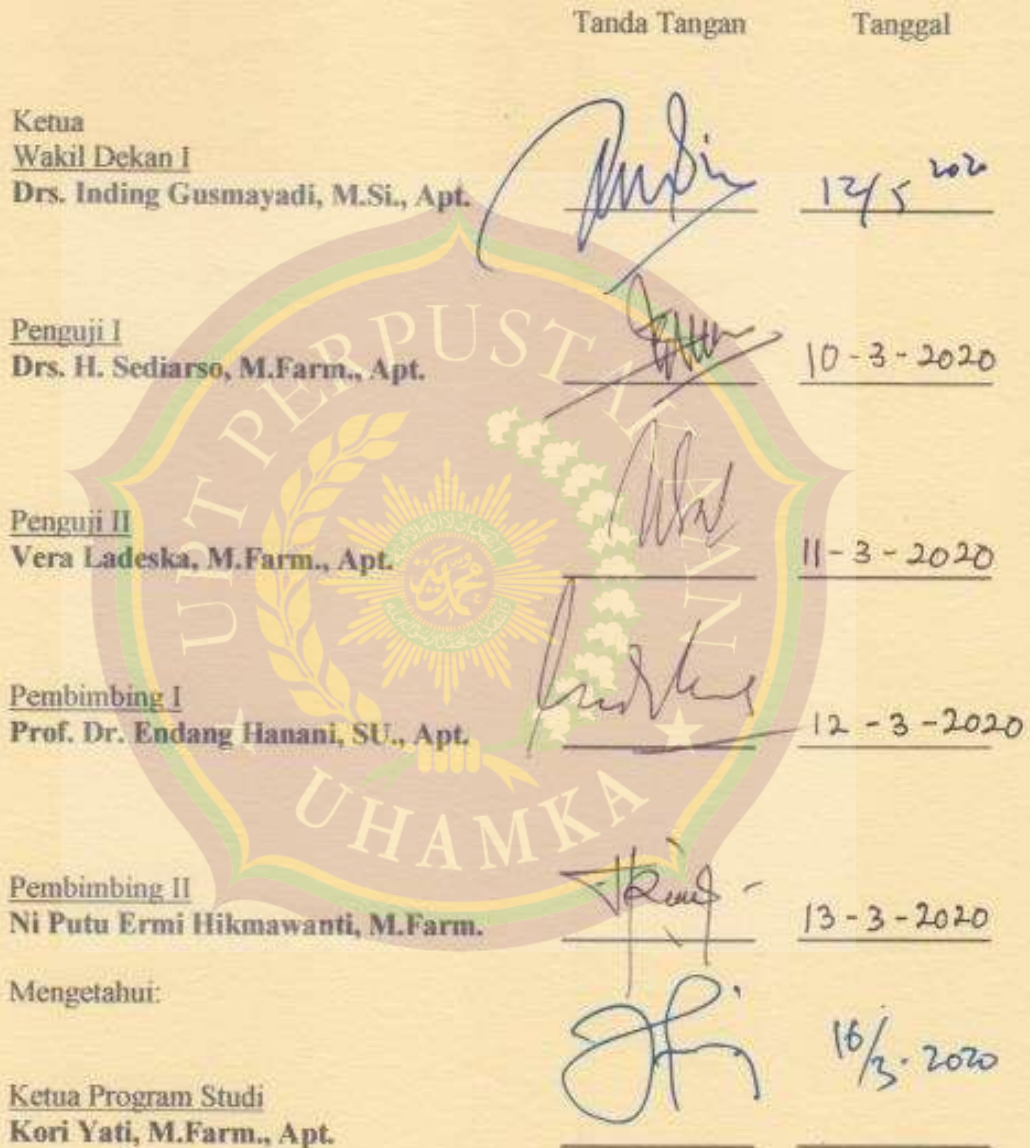 Tanda Tangan Tanggal
Ketua
Wakil Dekan I
Drs. Inding Gusmayadi, M.Si., Apt. 12/5 2020
Penguji I
Drs. H. Sediarso, M.Farm., Apt. 10-3-2020
Penguji II
Vera Ladeska, M.Farm., Apt. 11-3-2020
Pembimbing I
Prof. Dr. Endang Hanani, SU., Apt. 12-3-2020
Pembimbing II
Ni Putu Ermi Hikmawanti, M.Farm. 13-3-2020
Mengetahui:
16/3. 2020
Ketua Program Studi
Kori Yati, M.Farm., Apt.
UPT PERPUSTAKAAN
UHAMKA